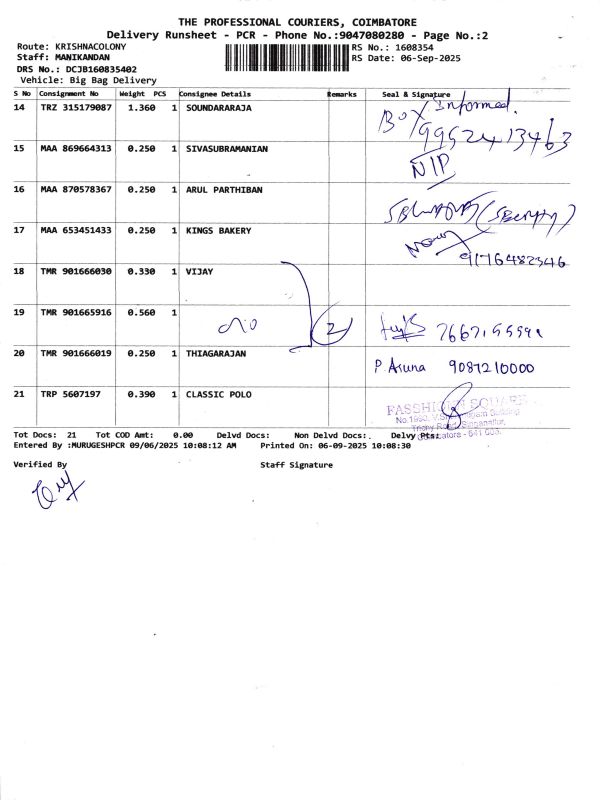 THE PROFESSIONAL COURIERS, COIMBATORE
Delivery Runsheet - PCR - Phone No.:9047080280 - Page No.:2
Route: KRISHNACOLONY
RS No.: 1608354
Staff: MANIKANDAN
RS Date: 06-Sep-2025
DRS No.: DCJB160835402
Vehicle: Big Bag Delivery
S No Consignment No Weight PCS Consignee Details Remarks Seal & Signature
14 TRZ 315179087 1.360 1 SOUNDARARAJA
Box Informed.
9952413463
15 MAA 869664313 0.250 1 SIVASUBRAMANIAN
NIP
16 MAA 870578367 0.250 1 ARUL PARTHIBAN
17 MAA 653451433 0.250 1 KINGS BAKERY
9176482346
18 TMR 901666030 0.330 1 VIJAY
19 TMR 901665916 0.560 1
2
20 TMR 901666019 0.250 1 THIAGARAJAN
P. Aruna 9087210000
21 TRP 5607197 0.390 1 CLASSIC POLO
Tot Docs: 21 Tot COD Amt: 0.00 Delvd Docs: Non Delvd Docs:. Delvy Pts:
Entered By :MURUGESHPCR 09/06/2025 10:08:12 AM Printed On: 06-09-2025 10:08:30
Verified By Staff Signature